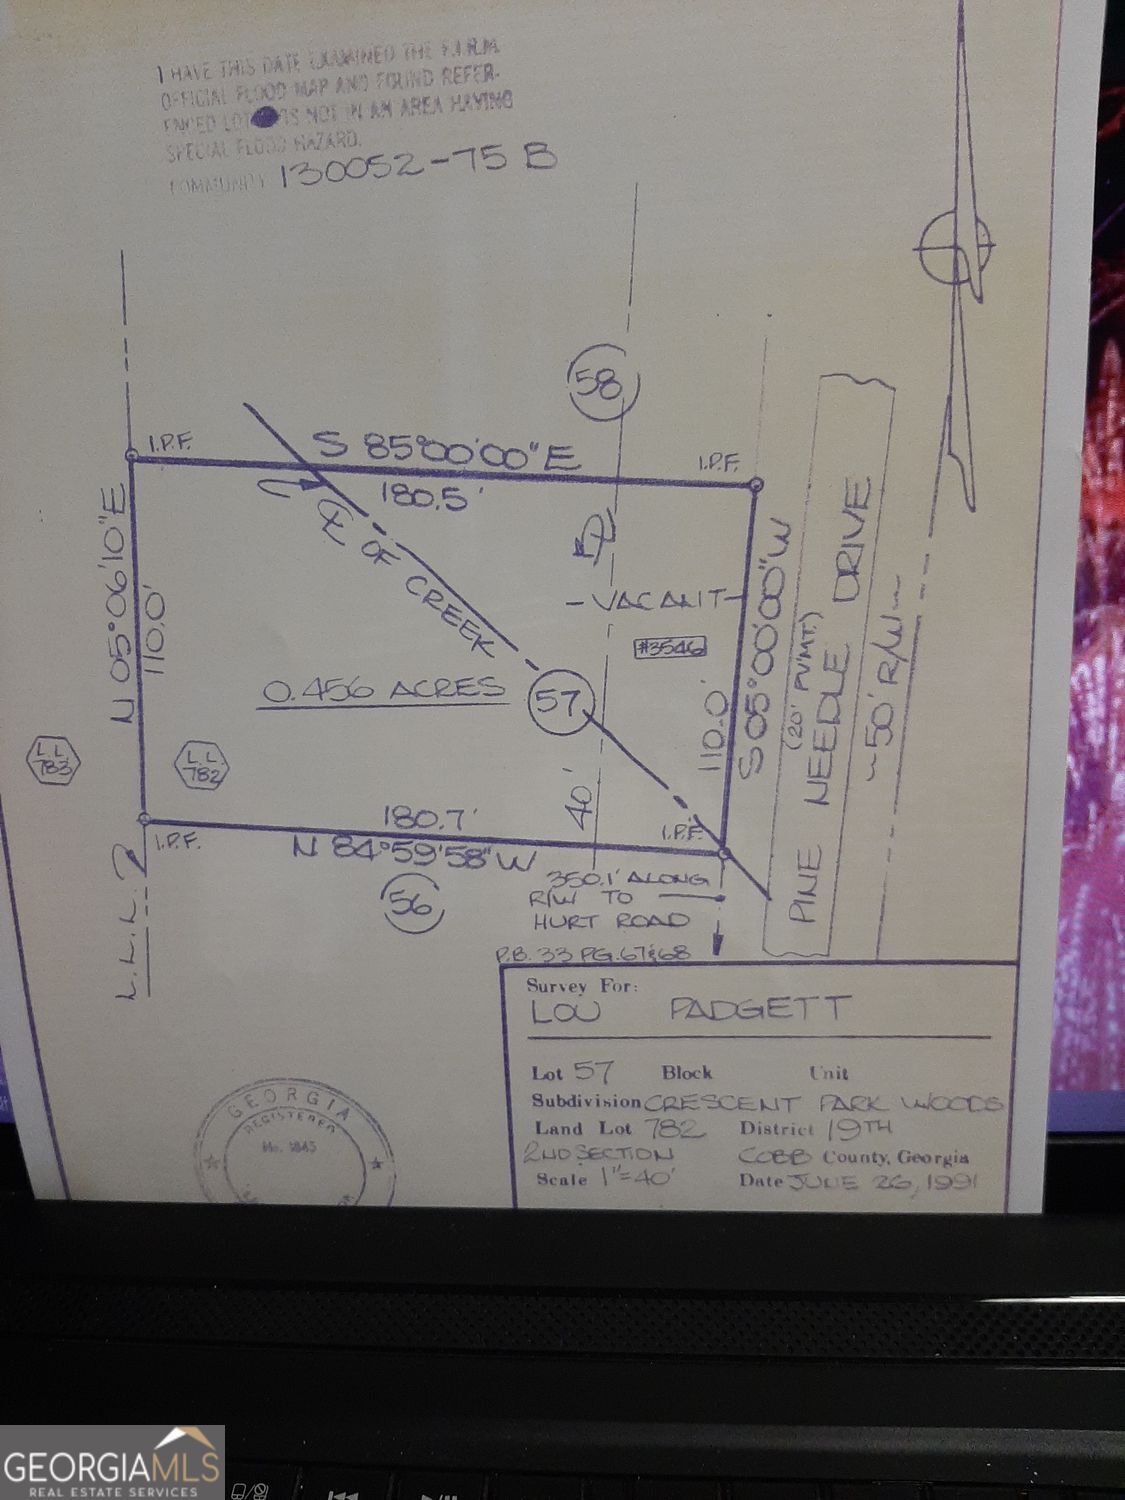 I HAVE THIS DATE EXAMINED THE F.I.R.M.
OFFICIAL FLOOD MAP AND FOUND REFER-
ENCED LOT IS NOT IN AN AREA HAVING
SPECIAL FLOOD HAZARD.
COMMUNITY 130052-75 B
58
I.P.F.
S 85°00'00" E
I.P.F.
180.5'
℄ OF CREEK
N 05°06'10" E
110.0'
-VACANT-
#3546
0.456 ACRES
57
110.0'
S 05°00'00" W
(20' PV'MT.)
PINE NEEDLE DRIVE
~50' R/W~
L.L. 783
L.L. 782
40'
180.7'
I.P.F.
I.P.F.
N 84°59'58" W
56
350.1' ALONG
R/W TO
HURT ROAD
L.L.L.
P.B. 33 PG. 67 & 68
Survey For:
LOU PADGETT
Lot 57 Block Unit
Subdivision CRESCENT PARK WOODS
Land Lot 782 District 19TH
2ND SECTION COBB County, Georgia
Scale 1"=40' Date JUNE 26, 1991
GEORGIA
REGISTERED
No. 1845
GEORGIAMLS
REAL ESTATE SERVICES